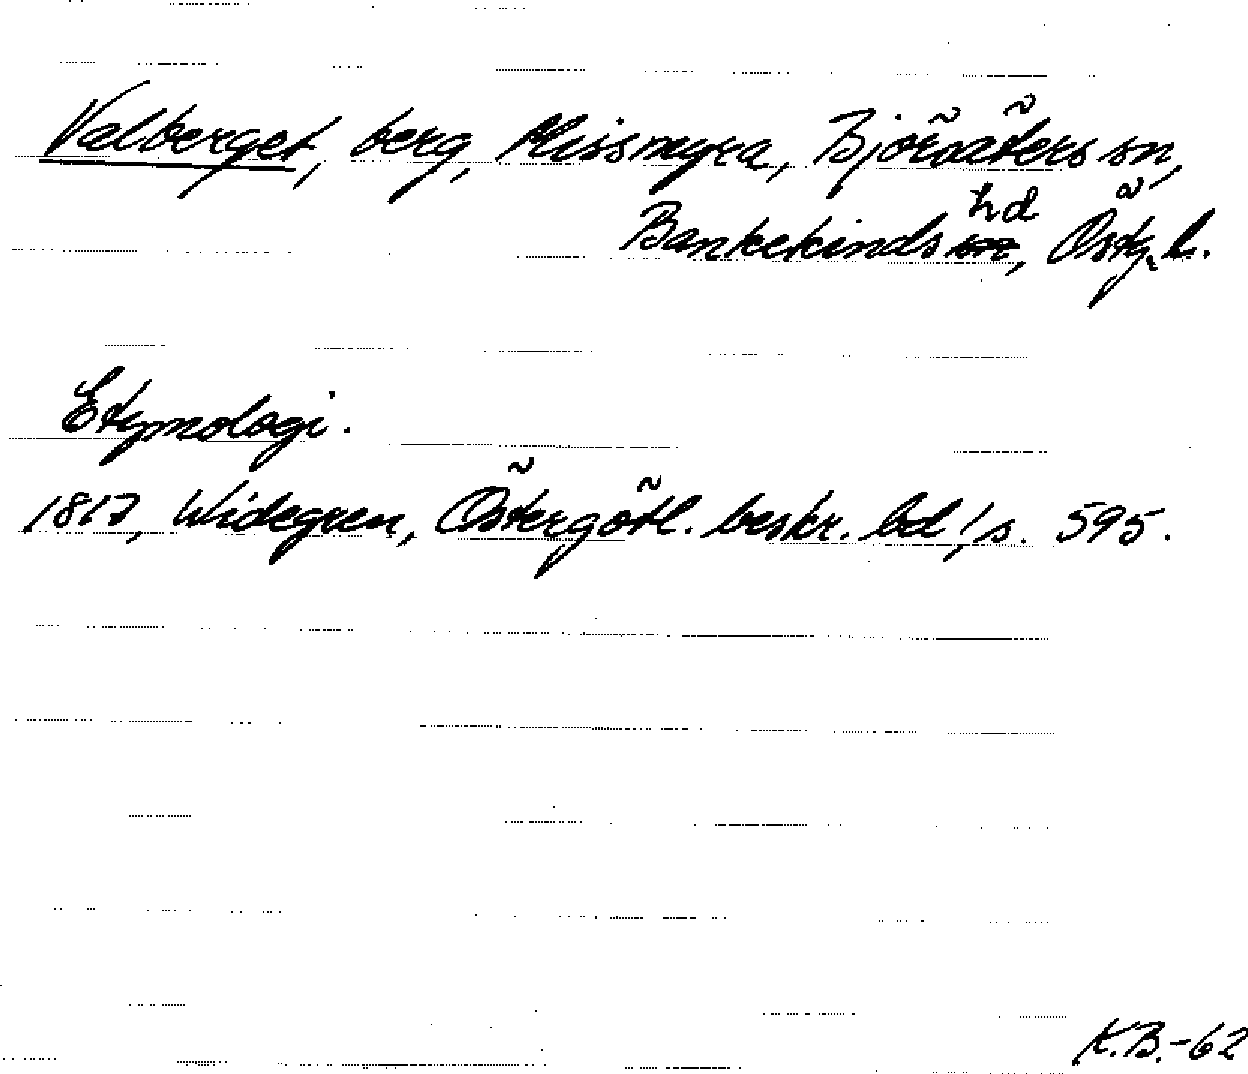 Valberget, berg, Missmyra, Björsäters sn,
Bankekinds sn hd, Östg. l.
Etymologi.
1817, Widegren, Östergötl. beskr. bd 1, s. 595.
K.B.-62